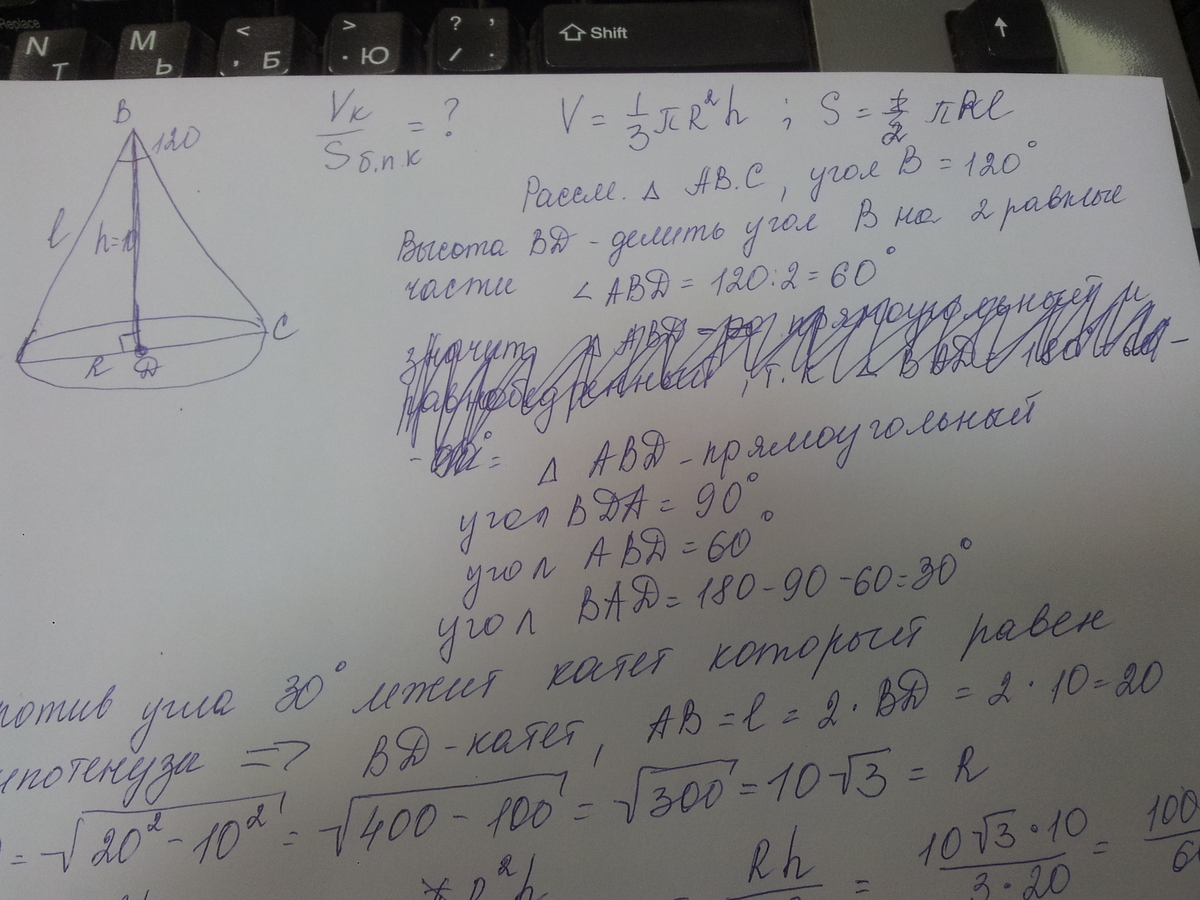 Replace
N Т
M Ь
< , Б
> . Ю
? , / .
Shift
B
120
l
h=10
C
R
D
Vк / Sб.п.к = ?
V = 1/3 πR²h ; S = πRl
Рассм. △ AB.C, угол B = 120°
Высота BD - делить угол B на 2 равные
части ∠ABD = 120:2 = 60°
значит △ ABD прямоугольный и
равнобедренный, т.к ∠ BAD = 180
△ ABD - прямоугольный
угол BDA = 90°
угол ABD = 60°
угол BAD = 180 - 90 - 60 = 30°
ротив угла 30° лежит катет который равен
ипотенуза => BD - катет, AB = l = 2·BD = 2·10 = 20
= √20² - 10² = √400 - 100 = √300 = 10√3 = R
R²h
Rh
= 10√3·10 / 3·20 = 100